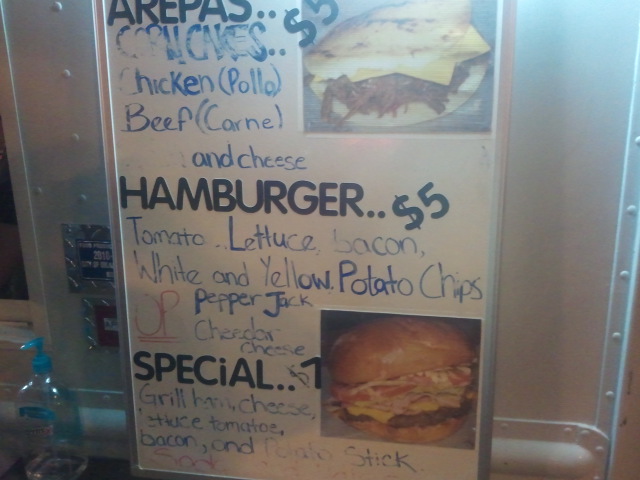 AREPAS.. $5
CORN CAKES..
Chicken (Pollo)
Beef (Carne)
and cheese
HAMBURGER.. $5
Tomato.. Lettuce, bacon,
White and Yellow. Potato Chips
Pepper Jack
Cheedar
cheese
SPECiAL..
Grill ham, cheese,
lettuce tomatoe,
bacon, and Potato Stick.